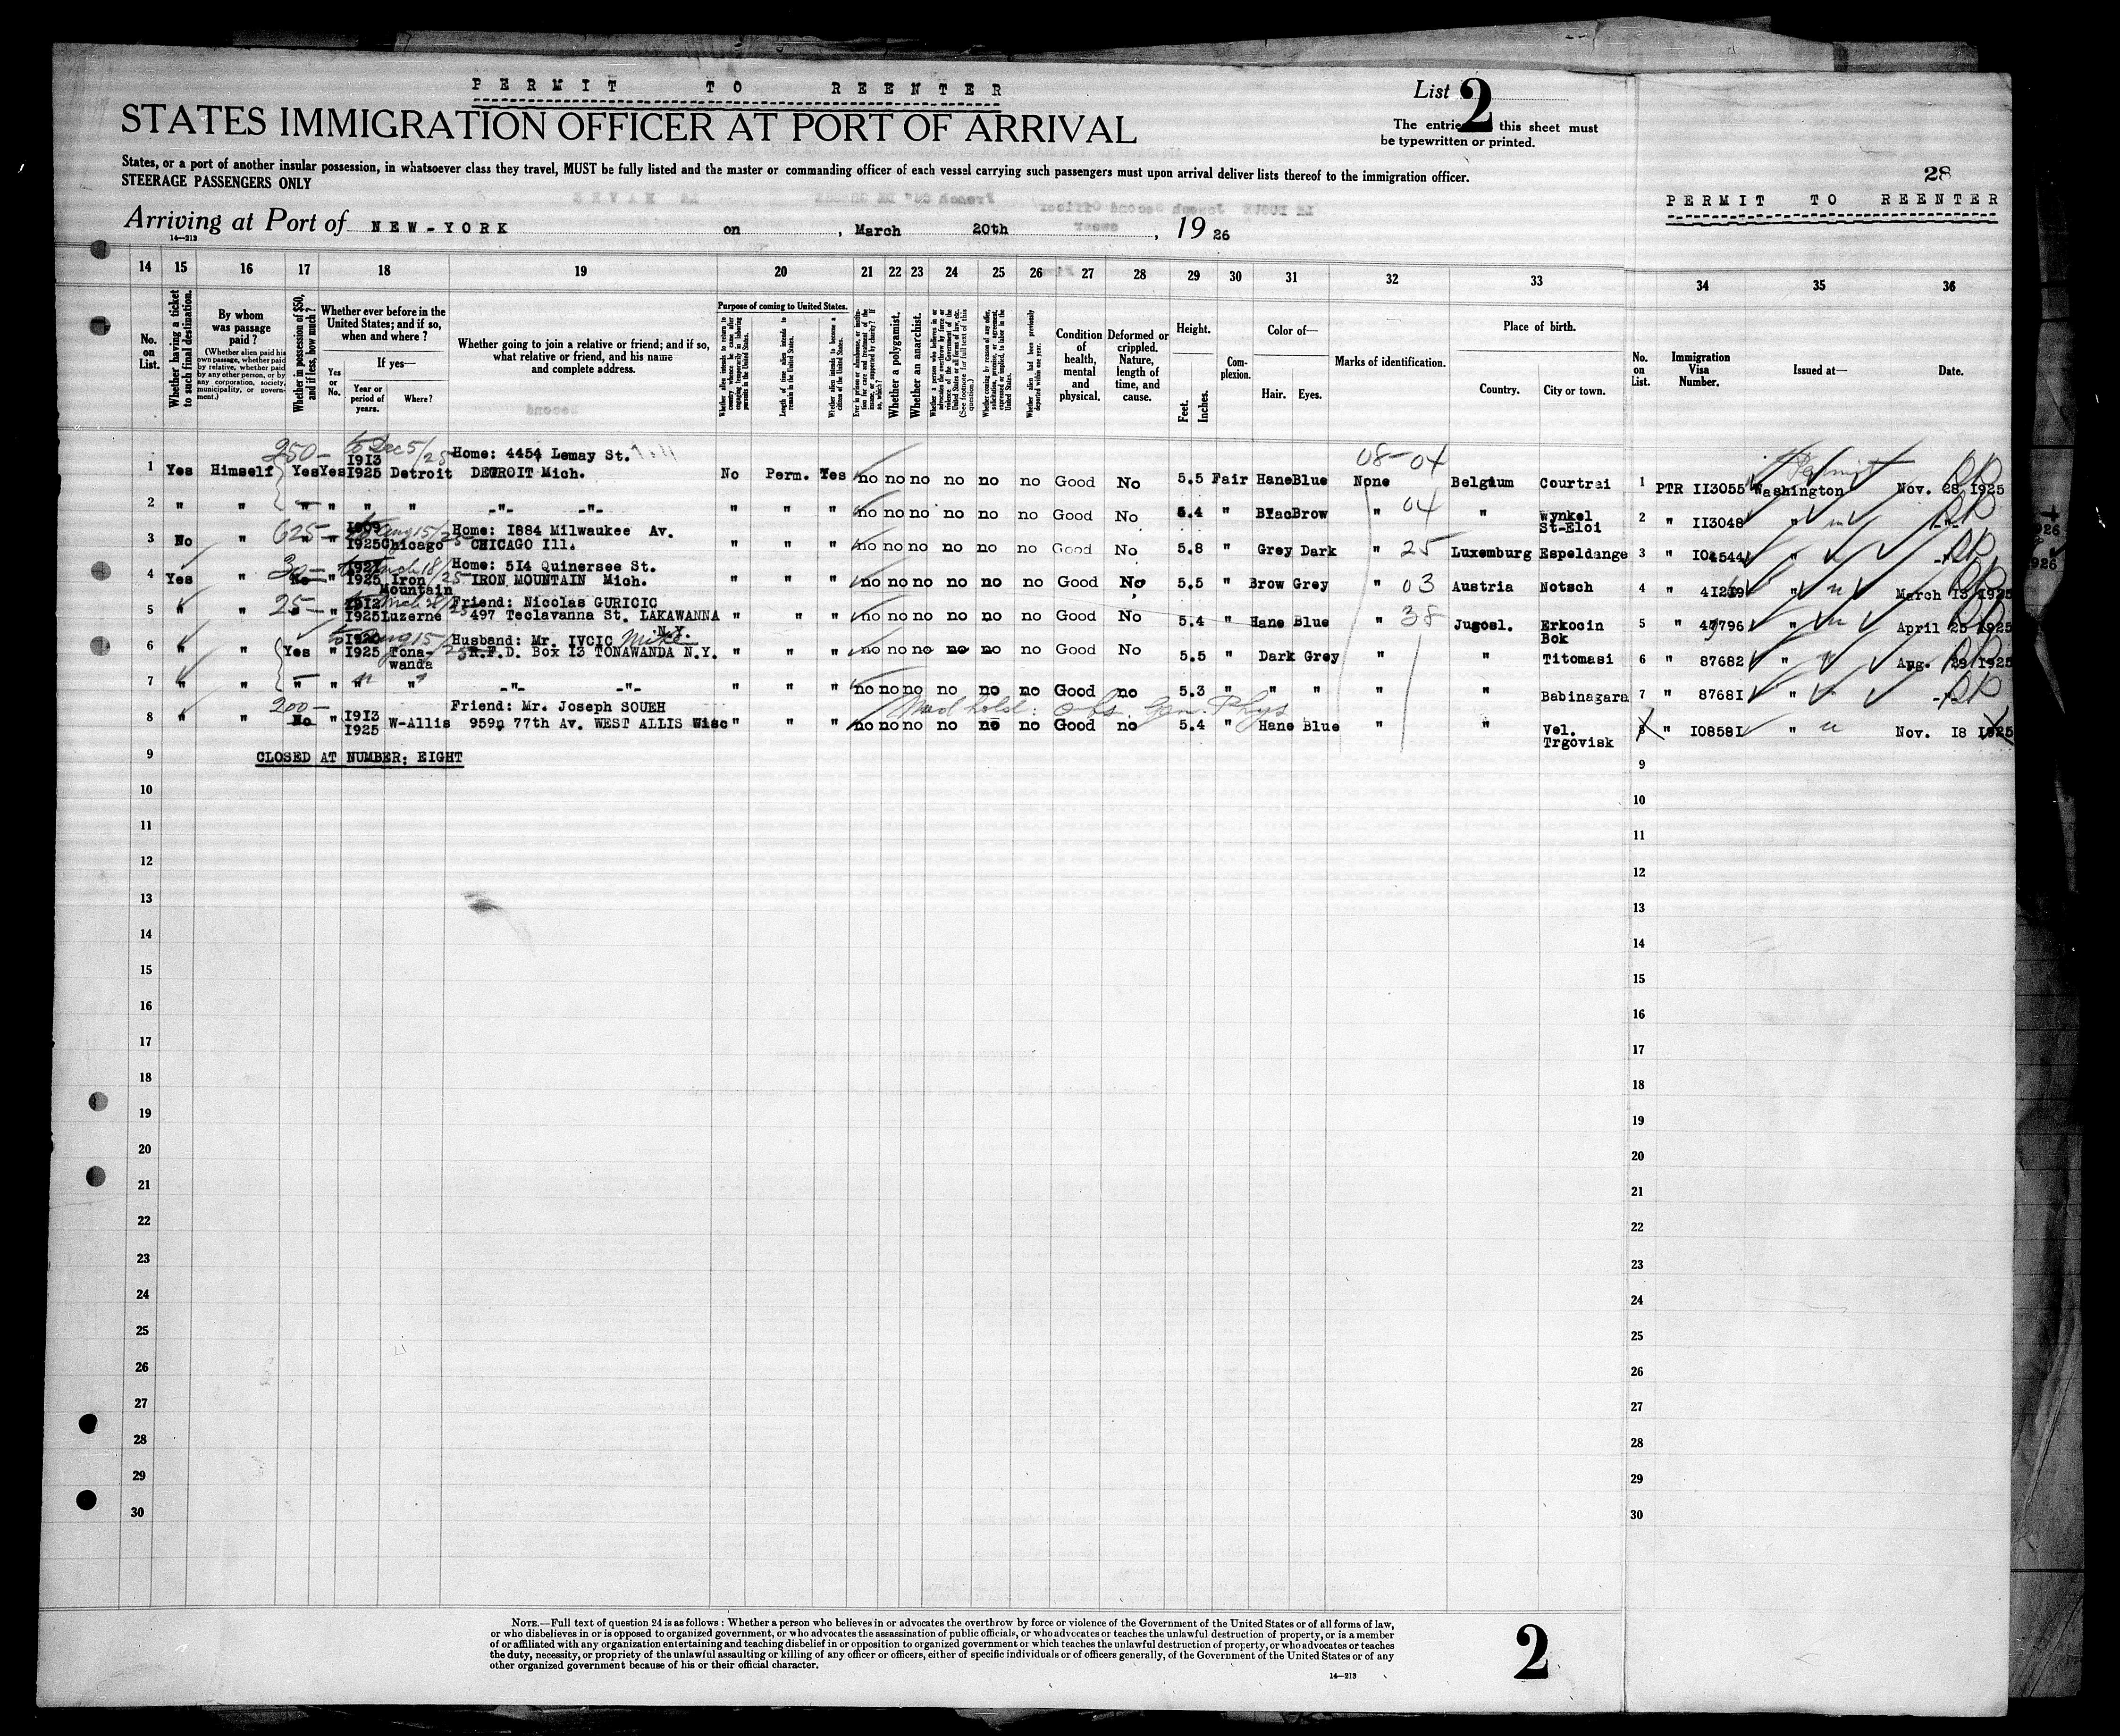 PERMIT TO REENTER
List 2
STATES IMMIGRATION OFFICER AT PORT OF ARRIVAL
The entries this sheet must
be typewritten or printed.
States, or a port of another insular possession, in whatsoever class they travel, MUST be fully listed and the master or commanding officer of each vessel carrying such passengers must upon arrival deliver lists thereof to the immigration officer.
STEERAGE PASSENGERS ONLY
28
PERMIT TO REENTER
Arriving at Port of NEW-YORK on , March 20th , 19 26
14—213
14 15 16 17 18 19 20 21 22 23 24 25 26 27 28 29 30 31 32 33 34 35 36
No. on List.
Whether having a ticket to such final destination.
By whom was passage paid?
(Whether alien paid his own passage, whether paid by relative, whether paid by any other person, or by any corporation, society, municipality, or government.)
Whether in possession of $50, and if less, how much?
Whether ever before in the United States; and if so, when and where?
Yes or No.
If yes—
Year or period of years.
Where?
Whether going to join a relative or friend; and if so, what relative or friend, and his name and complete address.
Purpose of coming to United States.
Whether alien intends to return to country whence he came after engaging temporarily in laboring pursuits in the United States.
Length of time alien intends to remain in the United States.
Whether alien intends to become a citizen of the United States.
Whether a polygamist.
Whether an anarchist.
Condition of health, mental and physical.
Deformed or crippled. Nature, length of time, and cause.
Height.
Feet. Inches.
Complexion.
Color of—
Hair. Eyes.
Marks of identification.
Place of birth.
Country. City or town.
No. on List.
Immigration Visa Number.
Issued at—
Date.
250— to Dec 5/25 Home: 4454 Lemay St. 08-04
1 Yes Himself Yes Yes 1913 1925 Detroit DETROIT Mich. No Perm. Yes no no no no no no Good No 5.5 Fair Hane Blue None Belgium Courtrai 1 PTR 113055 Washington Nov. 28 1925
2 " " " " " " -"- -"- " " " no no no no no no Good No 5.4 " Brow " 04 " Wynkel St-Eloi 2 " 113048 " -"-
3 No " 625— " " 1909 1925 Aug 15/25 Chicago Home: 1884 Milwaukee Av. CHICAGO Ill. " " " no no no no no no Good No 5.8 " Grey Dark " 25 Luxemburg Espeldange 3 " 104544 " -"-
4 Yes " 30— No " 1921 1925 Mch 18/25 Iron Mountain Home: 514 Quinersee St. IRON MOUNTAIN Mich. " " " no no no no no no Good No 5.5 " Brow Grey " 03 Austria Notsch 4 " 41219 " March 13 1925
5 " " 25— " " 1912 1925 Luzerne Friend: Nicolas GURICIC 497 Teclavanna St. LAKAWANNA N.Y. " " " no no no no no no Good No 5.4 " Hane Blue " 38 Jugosl. Erkocin Bok 5 " 47796 " April 25 1925
6 " " Yes " 1920 1925 Aug 15/25 Tonawanda Husband: Mr. IVCIC Mike R.F.D. Box 13 TONAWANDA N.Y. " " " no no no no no no Good No 5.5 " Dark Grey " " Titomasi 6 " 87682 " Aug. 29 1925
7 " " " " " " -"- -"- " " " no no no no no no Good no 5.3 " " " " " Babinagara 7 " 87681 " -"-
8 " " 200— No " 1913 1925 W-Allis Friend: Mr. Joseph SOUEH 959n 77th Av. WEST ALLIS Wisc " " " no no no no no no Good no 5.4 " Hane Blue " " Vel. Trgovisk 8 " 108581 " Nov. 18 1925
Med hold: Obs. Gen. Phys
9 CLOSED AT NUMBER: EIGHT 9
10 10
11 11
12 12
13 13
14 14
15 15
16 16
17 17
18 18
19 19
20 20
21 21
22 22
23 23
24 24
25 25
26 26
27 27
28 28
29 29
30 30
NOTE.—Full text of question 24 is as follows: Whether a person who believes in or advocates the overthrow by force or violence of the Government of the United States or of all forms of law,
or who disbelieves in or is opposed to organized government, or who advocates the assassination of public officials, or who advocates or teaches the unlawful destruction of property, or is a member
of or affiliated with any organization entertaining and teaching disbelief in or opposition to organized government or which teaches the unlawful destruction of property, or who advocates or teaches
the duty, necessity, or propriety of the unlawful assaulting or killing of any officer or officers, either of specific individuals or of officers generally, of the Government of the United States or of any
other organized government because of his or their official character.
14—213
2